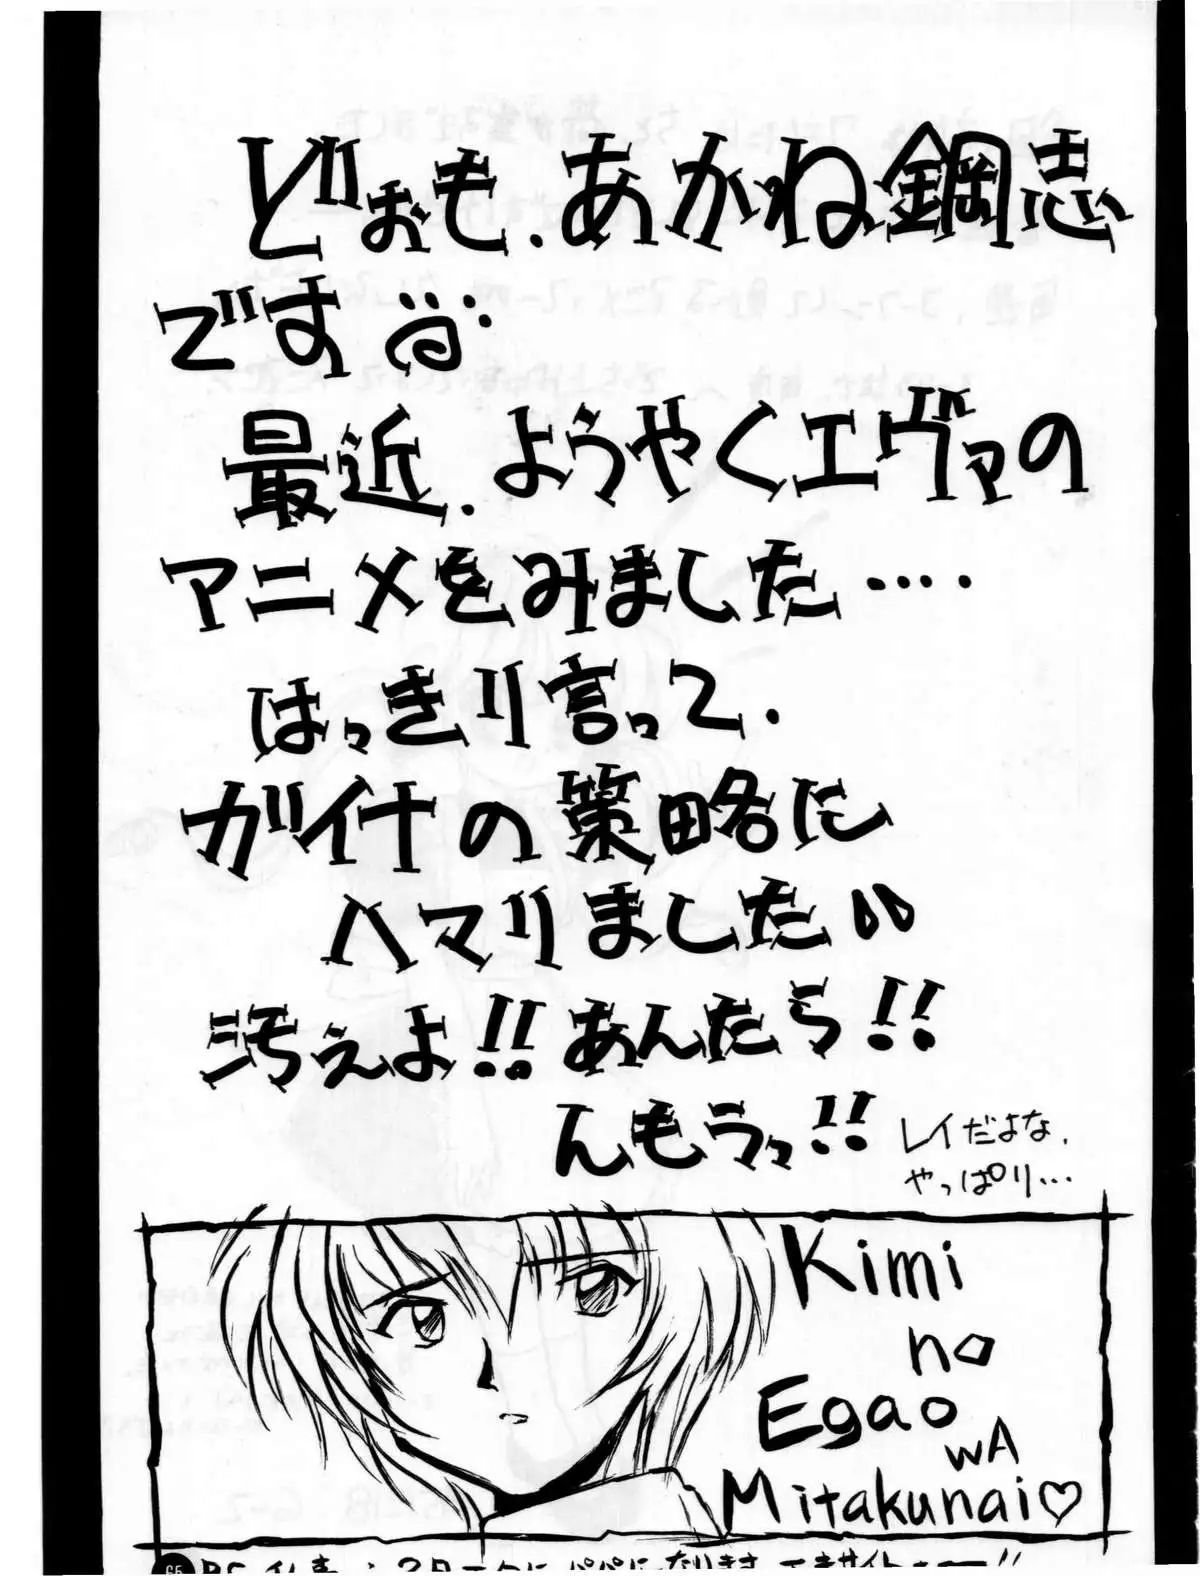 どぉも、あかね鋼志
です
最近、ようやくエヴァの
アニメをみました‥‥
はっきり言って、
ガイナの策略に
ハマりました
汚ぇよ!!あんたら!!
んもうッ!!
レイだよな、
やっぱり…
Kimi
no
Egao
wA
Mitakunai♡